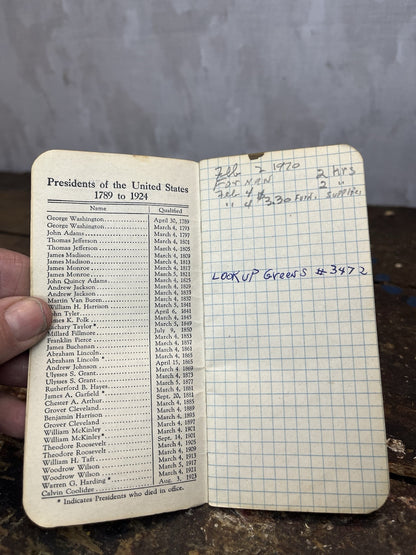 Presidents of the United States
1789 to 1924
Name Qualified
George Washington April 30, 1789
George Washington March 4, 1793
John Adams March 4, 1797
Thomas Jefferson March 4, 1801
Thomas Jefferson March 4, 1805
James Madison March 4, 1809
James Madison March 4, 1813
James Monroe March 4, 1817
James Monroe March 5, 1821
John Quincy Adams March 4, 1825
Andrew Jackson March 4, 1829
Andrew Jackson March 4, 1833
Martin Van Buren March 4, 1837
William H. Harrison March 4, 1841
John Tyler April 6, 1841
James K. Polk March 4, 1845
Zachary Taylor * March 5, 1849
Millard Fillmore July 9, 1850
Franklin Pierce March 4, 1853
James Buchanan March 4, 1857
Abraham Lincoln March 4, 1861
Abraham Lincoln * March 4, 1865
Andrew Johnson April 15, 1865
Ulysses S. Grant March 4, 1869
Ulysses S. Grant March 4, 1873
Rutherford B. Hayes March 5, 1877
James A. Garfield * March 4, 1881
Chester A. Arthur Sept. 20, 1881
Grover Cleveland March 4, 1885
Benjamin Harrison March 4, 1889
Grover Cleveland March 4, 1893
William McKinley March 4, 1897
William McKinley* March 4, 1901
Theodore Roosevelt Sept. 14, 1901
Theodore Roosevelt March 4, 1905
William H. Taft March 4, 1909
Woodrow Wilson March 4, 1913
Woodrow Wilson March 5, 1917
Warren G. Harding * March 4, 1921
Calvin Coolidge Aug. 3, 1923
* Indicates Presidents who died in office.
Feb 2 1970
2 hrs
Feb 4 2 "
" 4 $3.30 Supplies
LOOKUP Greens #3472